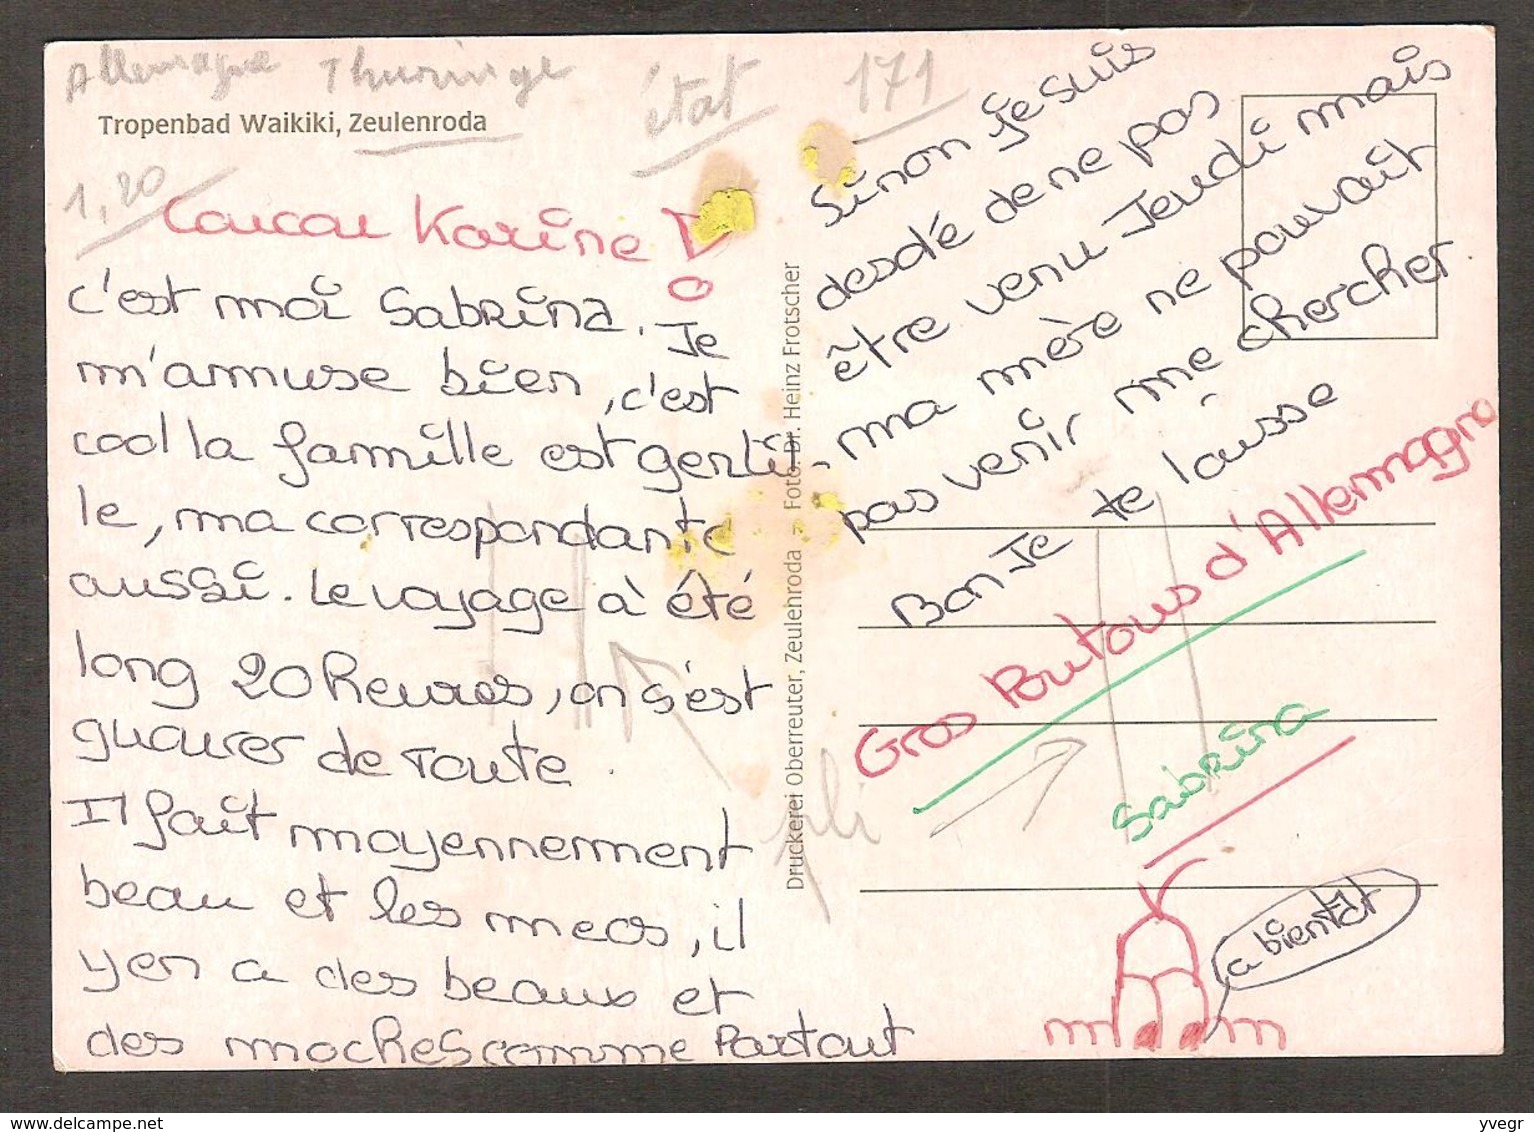 Allemagne Thuringe
état
171
Tropenbad Waikiki, Zeulenroda
1,20
Coucou Karine !
c'est moi Sabrina. Je
m'ammuse bien, c'est
cool la famille est genti-
le, ma correspondante
aussi. Le voyage à été
long 20 heures, on s'est
gourer de route.
Il fait moyennement
beau et les mecs, il
y en a des beaux et
des moches comme Partout
Druckerei Oberreuter, Zeulenroda – Foto: Dr. Heinz Frotscher
Sinon je suis
desolé de ne pas
être venu Jeudi mais
ma mère ne pouvait
pas venir me chercher
Bon Je te laisse
Gros Poutous d'Allemagne
Sabrina
pli
a bientôt
www.delcampe.net
yvegr